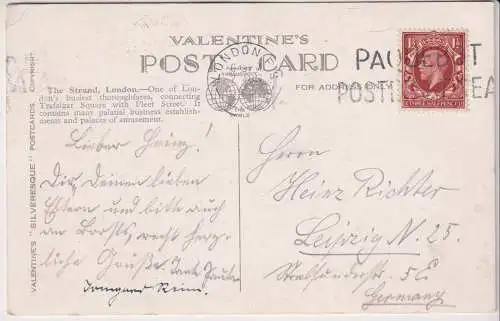 VALENTINE'S
POST CARD
FOR ADDRESS ONLY
LONDON
PAQUEBOT
POSTED AT SEA
The Strand, London.—One of Lon-
don's busiest thoroughfares, connecting
Trafalgar Square with Fleet Street. It
contains many palatial business establish-
ments and palaces of amusement.
VALENTINE'S "SILVERESQUE" POSTCARDS COPYRIGHT
Lieber Heinz!
Dir, Deinen lieben
Eltern und bitte auch
an Borsts, recht herz-
liche Grüße. Tante Paula
Irmgard
Herrn
Heinz Richter
Leipzig N. 25.
Stralsunderstr. 5 E
Germany